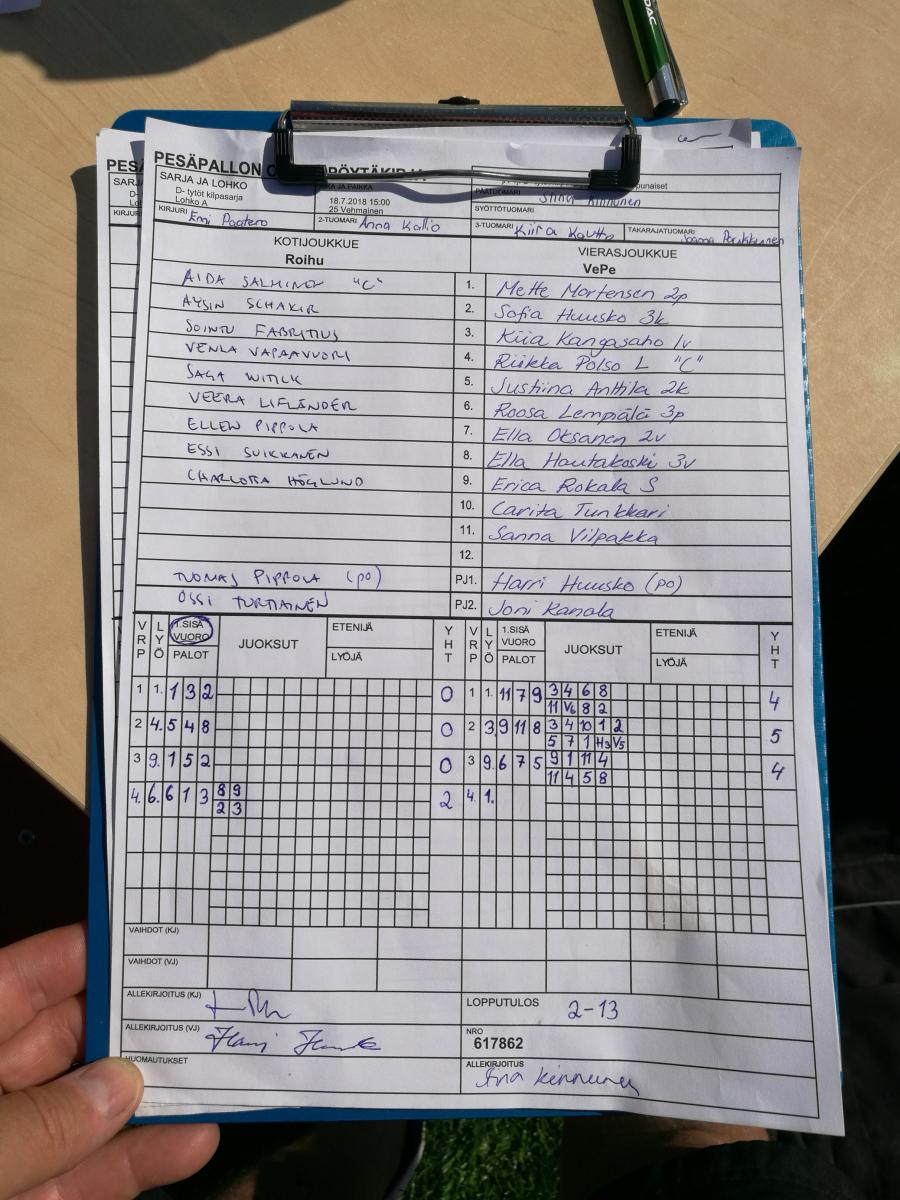 PESÄPALLON
SARJA JA LOHKO
D- tytöt kilpasarja
Lohko A
JA PAIKKA
18.7.2018 15:00
25 Vehmainen
PÄÄTUOMARI Stina Kinnunen
punaiset
SYÖTTÖTUOMARI
KIRJURI Emi Paatero
2-TUOMARI Anna Kallio
3-TUOMARI Kiira Kautto
TAKARAJATUOMARI Joanna
KOTIJOUKKUE
Roihu
VIERASJOUKKUE
VePe
AIDA SALMINEN "C" 1. Mette Mortensen 2p
AYSIN SCHAKIR 2. Sofia Huusko 3k
SOINTU FABRITIUS 3. Kiia Kangasaho 1v
VENLA VAPAAVUORI 4. Riikka Polso L "C"
SAGA WITICK 5. Justiina Anttila 2k
VEERA LIFLÄNDER 6. Roosa Lempiälä 3p
ELLEN PIPPOLA 7. Ella Oksanen 2v
ESSI SUIKKANEN 8. Ella Hautakoski 3v
CHARLOTTA HÖGLUND 9. Erica Rokala S
10. Carita Tunkkari
11. Sanna Vilpakka
12.
TUOMAS PIPPOLA (PO) PJ1. Harri Huusko (PO)
OSSI TURTIAINEN PJ2. Joni Ranala
VRP LYÖ 1.SISÄ VUORO PALOT JUOKSUT ETENIJÄ LYÖJÄ YHT VRP LYÖ 1.SISÄ VUORO PALOT JUOKSUT ETENIJÄ LYÖJÄ YHT
1 1. 1 3 2 0 1 1. 11 7 9 3 4 6 8 4
11 V6 8 2
2 4. 5 4 8 0 2 3. 9 11 8 3 4 10 1 2 5
5 7 1 H3 V5
3 9. 1 5 2 0 3 9. 6 7 5 9 1 11 4 4
11 4 5 8
4. 6. 6 1 3 8 9 2 4. 1.
2 3
VAIHDOT (KJ)
VAIHDOT (VJ)
ALLEKIRJOITUS (KJ)
LOPPUTULOS 2-13
ALLEKIRJOITUS (VJ) Harri Huusko
NRO
617862
HUOMAUTUKSET
ALLEKIRJOITUS
Stina Kinnunen